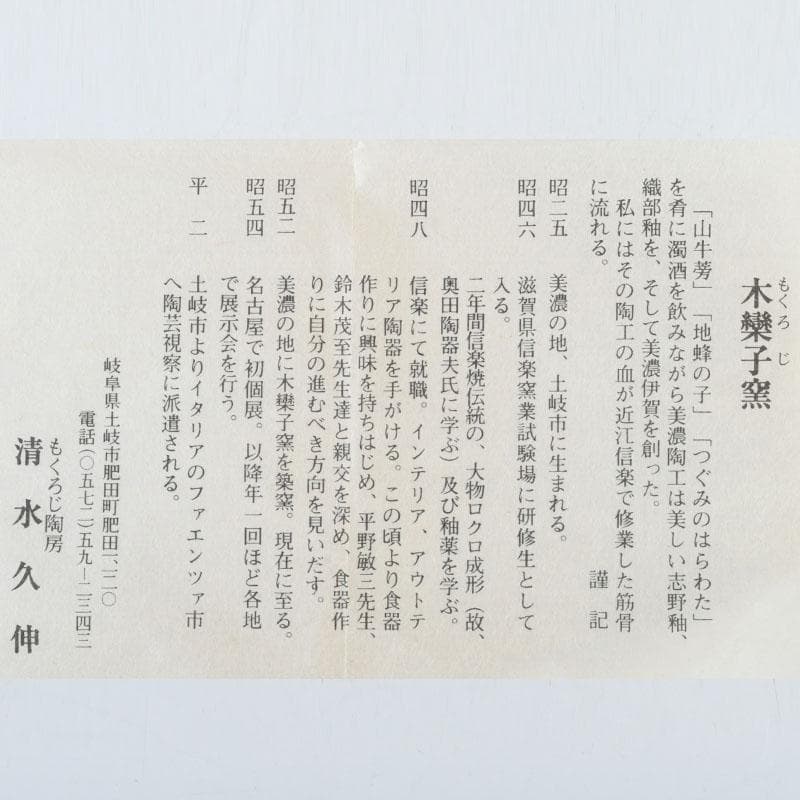 もくろじ
木欒子窯
「山牛蒡」「地蜂の子」「つぐみのはらわた」
を肴に濁酒を飲みながら美濃陶工は美しい志野釉、
織部釉を、そして美濃伊賀を創った。
私にはその陶工の血が近江信楽で修業した筋骨
に流れる。
謹記
昭二五 美濃の地、土岐市に生まれる。
昭四六 滋賀県信楽窯業試験場に研修生として
入る。
二年間信楽焼伝統の、大物ロクロ成形(故、
奥田陶器夫氏に学ぶ)及び釉薬を学ぶ。
昭四八 信楽にて就職。インテリア、アウトテ
リア陶器を手がける。この頃より食器
作りに興味を持ちはじめ、平野敏三先生、
鈴木茂至先生達と親交を深め、食器作
りに自分の進むべき方向を見いだす。
昭五二 美濃の地に木欒子窯を築窯。現在に至る。
昭五四 名古屋で初個展。以降年一回ほど各地
で展示会を行う。
平二 土岐市よりイタリアのファエンツァ市
へ陶芸視察に派遣される。
岐阜県土岐市肥田町肥田二、一二〇
電話(〇五七二)五九ー二三四三
もくろじ陶房
清水久伸